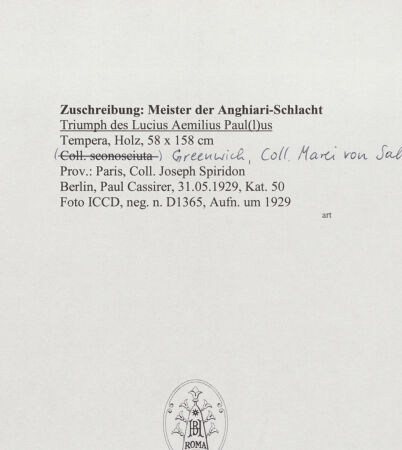 Zuschreibung: Meister der Anghiari-Schlacht
Triumph des Lucius Aemilius Paul(l)us
Tempera, Holz, 58 x 158 cm
(Coll. sconosciuta) Greenwich, Coll. Marei von Sal
Prov.: Paris, Coll. Joseph Spiridon
Berlin, Paul Cassirer, 31.05.1929, Kat. 50
Foto ICCD, neg. n. D1365, Aufn. um 1929
art
BH
ROMA